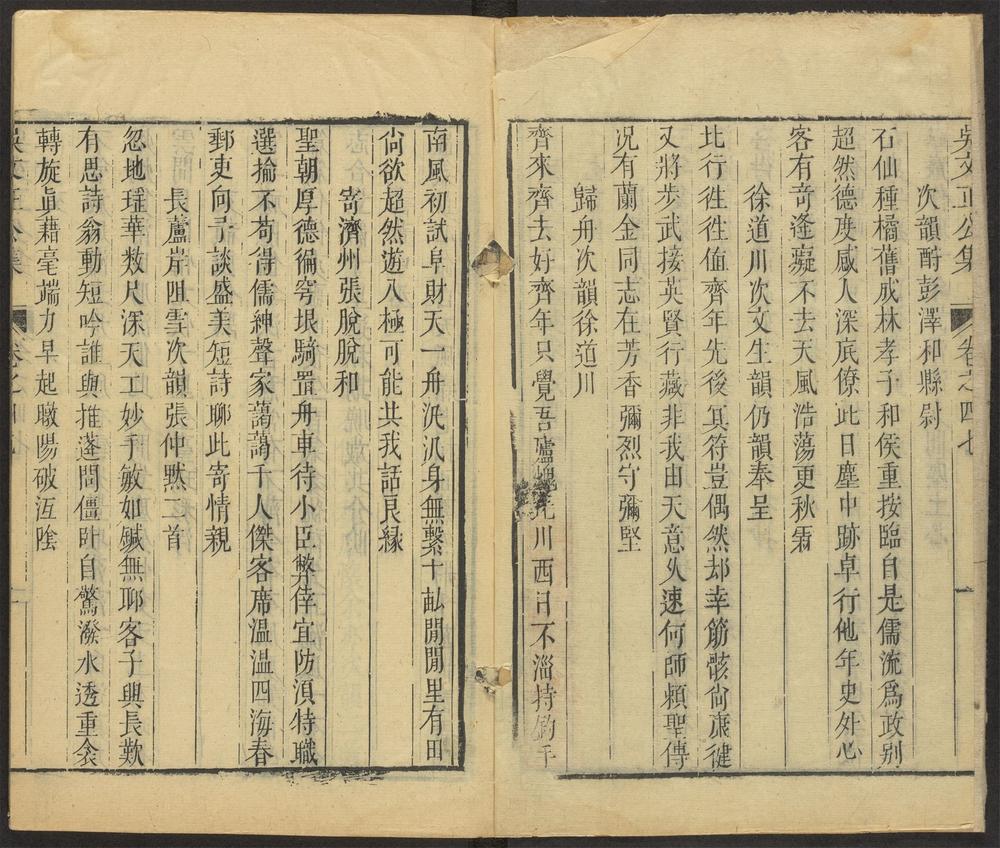 吳文正公集 卷之四七 一
次韻酧彭澤和縣尉
石仙種橘舊成林孝子和侯重按臨自是儒流爲政别
超然德度感人深底僚此日塵中跡卓行他年史外心
客有竒逢癡不去天風浩蕩更秋霖
徐道川次文生韻仍韻奉呈
比行徃徃值齊年先後其符豈偶然却幸筋骸尙康健
又將步武接英賢行藏非我由天意久速何師頼聖傳
况有蘭金同志在芳香彌烈守彌堅
歸舟次韻徐道川
齊來齊去好齊年只覺吾廬川西日不淄持釣干
南風初試阜財天一舟汎汎身無繫十畝閒閒里有田
尙欲超然遊八極可能共我話良緣
寄濟州張脫脫和
聖朝厚德徧穹垠騎置舟車待小臣弊倖宜防湏特職
選掄不苟得儒紳聲家藹藹千人傑客席温温四海春
郵吏向予談盛美短詩聊此寄情親
長蘆岸阻雪次韻張仲黙二首
忽地瑶華数尺深天工妙手敏如鍼無聊客子興長歎
有思詩翁動短吟誰與推蓬問僵卧自驚潑水透重衾
轉旋眞藉毫端力早起暾陽破沍陰
吳文正公集 卷之四七 一